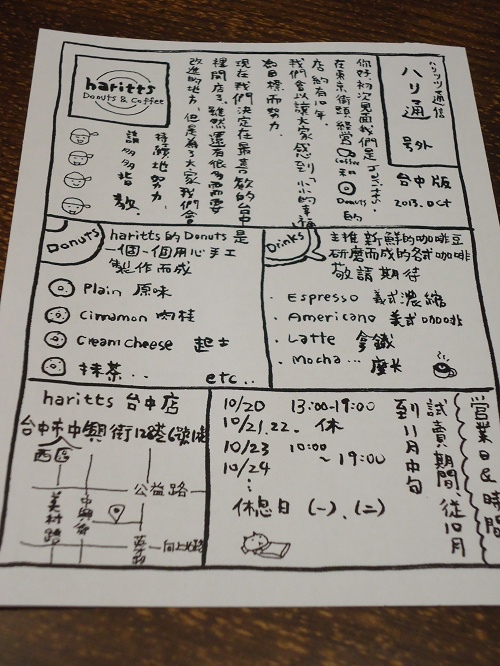 ハリッツ通信
ハリ通
号外
台中版
2013. Oct
你好,初次見面我們是
在東京街頭經營Coffee和Donuts的
店約有10年,
我們會以讓大家感到小小的幸福
為目標而努力.
現在我們決定在最喜歡的台中
裡開店了,雖然還有很多需要
改進的地方,但是為了大家我們會
持續地努力,
請多多指教.
haritts
Donuts & Coffee
Donuts
haritts的Donuts是
一個一個用心手工
製作而成
Plain 原味
Cinnamon 肉桂
Creamcheese 起士
抹茶..
etc..
Drinks
主推新鮮的咖啡豆
研磨而成的各式咖啡
敬請期待
· Espresso 義式濃縮
· Americano 美式咖啡
· Latte 拿鐵
· Mocha... 摩卡
haritts 台中店
台中市中興街
西區
公益路
美村路
中興街
向上北路
營業日&時間
試賣期間,從10月
到11月中旬
10/20 13:00-19:00
10/21.22. 休
10/23 10:00
10/24 ~19:00
⋮
休息日 (一)、(二)